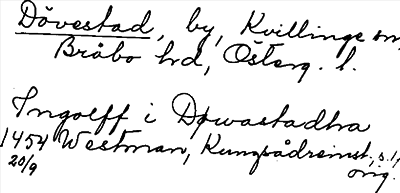 Dövestad, by, Kvillinge sn,
Bråbo hd, Österg. l.
Ingolff i Døwastadha
1454 Westman, Kungsådreinst., s. 1,
20/9 orig.